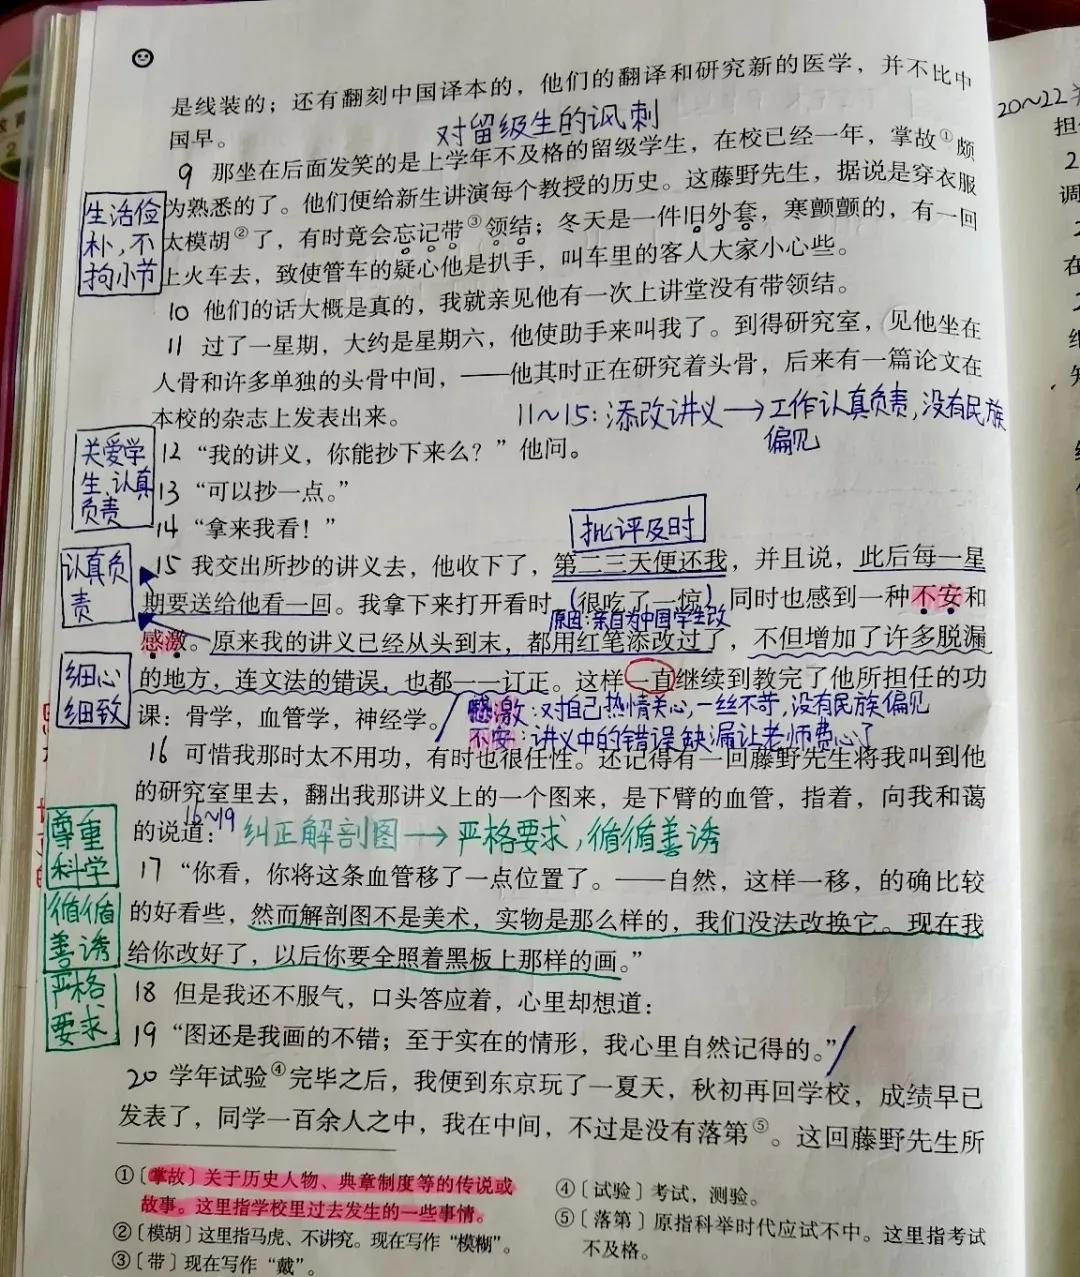 是线装的；还有翻刻中国译本的，他们的翻译和研究新的医学，并不比中
国早。
对留级生的讽刺
9 那坐在后面发笑的是上学年不及格的留级学生，在校已经一年，掌故①颇
为熟悉的了。他们便给新生讲演每个教授的历史。这藤野先生，据说是穿衣服
太模胡②了，有时竟会忘记带③领结；冬天是一件旧外套，寒颤颤的，有一回
上火车去，致使管车的疑心他是扒手，叫车里的客人大家小心些。
生活俭
朴，不
拘小节
10 他们的话大概是真的，我就亲见他有一次上讲堂没有带领结。
11 过了一星期，大约是星期六，他使助手来叫我了。到得研究室，见他坐在
人骨和许多单独的头骨中间，——他其时正在研究着头骨，后来有一篇论文在
本校的杂志上发表出来。
11～15：添改讲义→工作认真负责，没有民族
偏见
关爱学
生、认真
负责
12 “我的讲义，你能抄下来么？”他问。
13 “可以抄一点。”
14 “拿来我看！”
批评及时
认真负
责
15 我交出所抄的讲义去，他收下了，第二三天便还我，并且说，此后每一星
期要送给他看一回。我拿下来打开看时，（很吃了一惊）同时也感到一种不安和
原因：亲自为中国学生改
感激。原来我的讲义已经从头到末，都用红笔添改过了，不但增加了许多脱漏
的地方，连文法的错误，也都一一订正。这样一直继续到教完了他所担任的功
课：骨学，血管学，神经学。
细心
细致
感激：对自己热情关心，一丝不苟，没有民族偏见
不安：讲义中的错误缺漏让老师费心了
16 可惜我那时太不用功，有时也很任性。还记得有一回藤野先生将我叫到他
的研究室里去，翻出我那讲义上的一个图来，是下臂的血管，指着，向我和蔼
的说道：
16～19
纠正解剖图→严格要求，循循善诱
尊重
科学
循循
善诱
严格
要求
17 “你看，你将这条血管移了一点位置了。——自然，这样一移，的确比较
的好看些，然而解剖图不是美术，实物是那么样的，我们没法改换它。现在我
给你改好了，以后你要全照着黑板上那样的画。”
18 但是我还不服气，口头答应着，心里却想道：
19 “图还是我画的不错；至于实在的情形，我心里自然记得的。”
20 学年试验④完毕之后，我便到东京玩了一夏天，秋初再回学校，成绩早已
发表了，同学一百余人之中，我在中间，不过是没有落第⑤。这回藤野先生所
①〔掌故〕关于历史人物、典章制度等的传说或
故事。这里指学校里过去发生的一些事情。
②〔模胡〕这里指马虎、不讲究。现在写作“模糊”。
③〔带〕现在写作“戴”。
④〔试验〕考试，测验。
⑤〔落第〕原指科举时代应试不中。这里指考试
不及格。
20～22
担
2
调
在